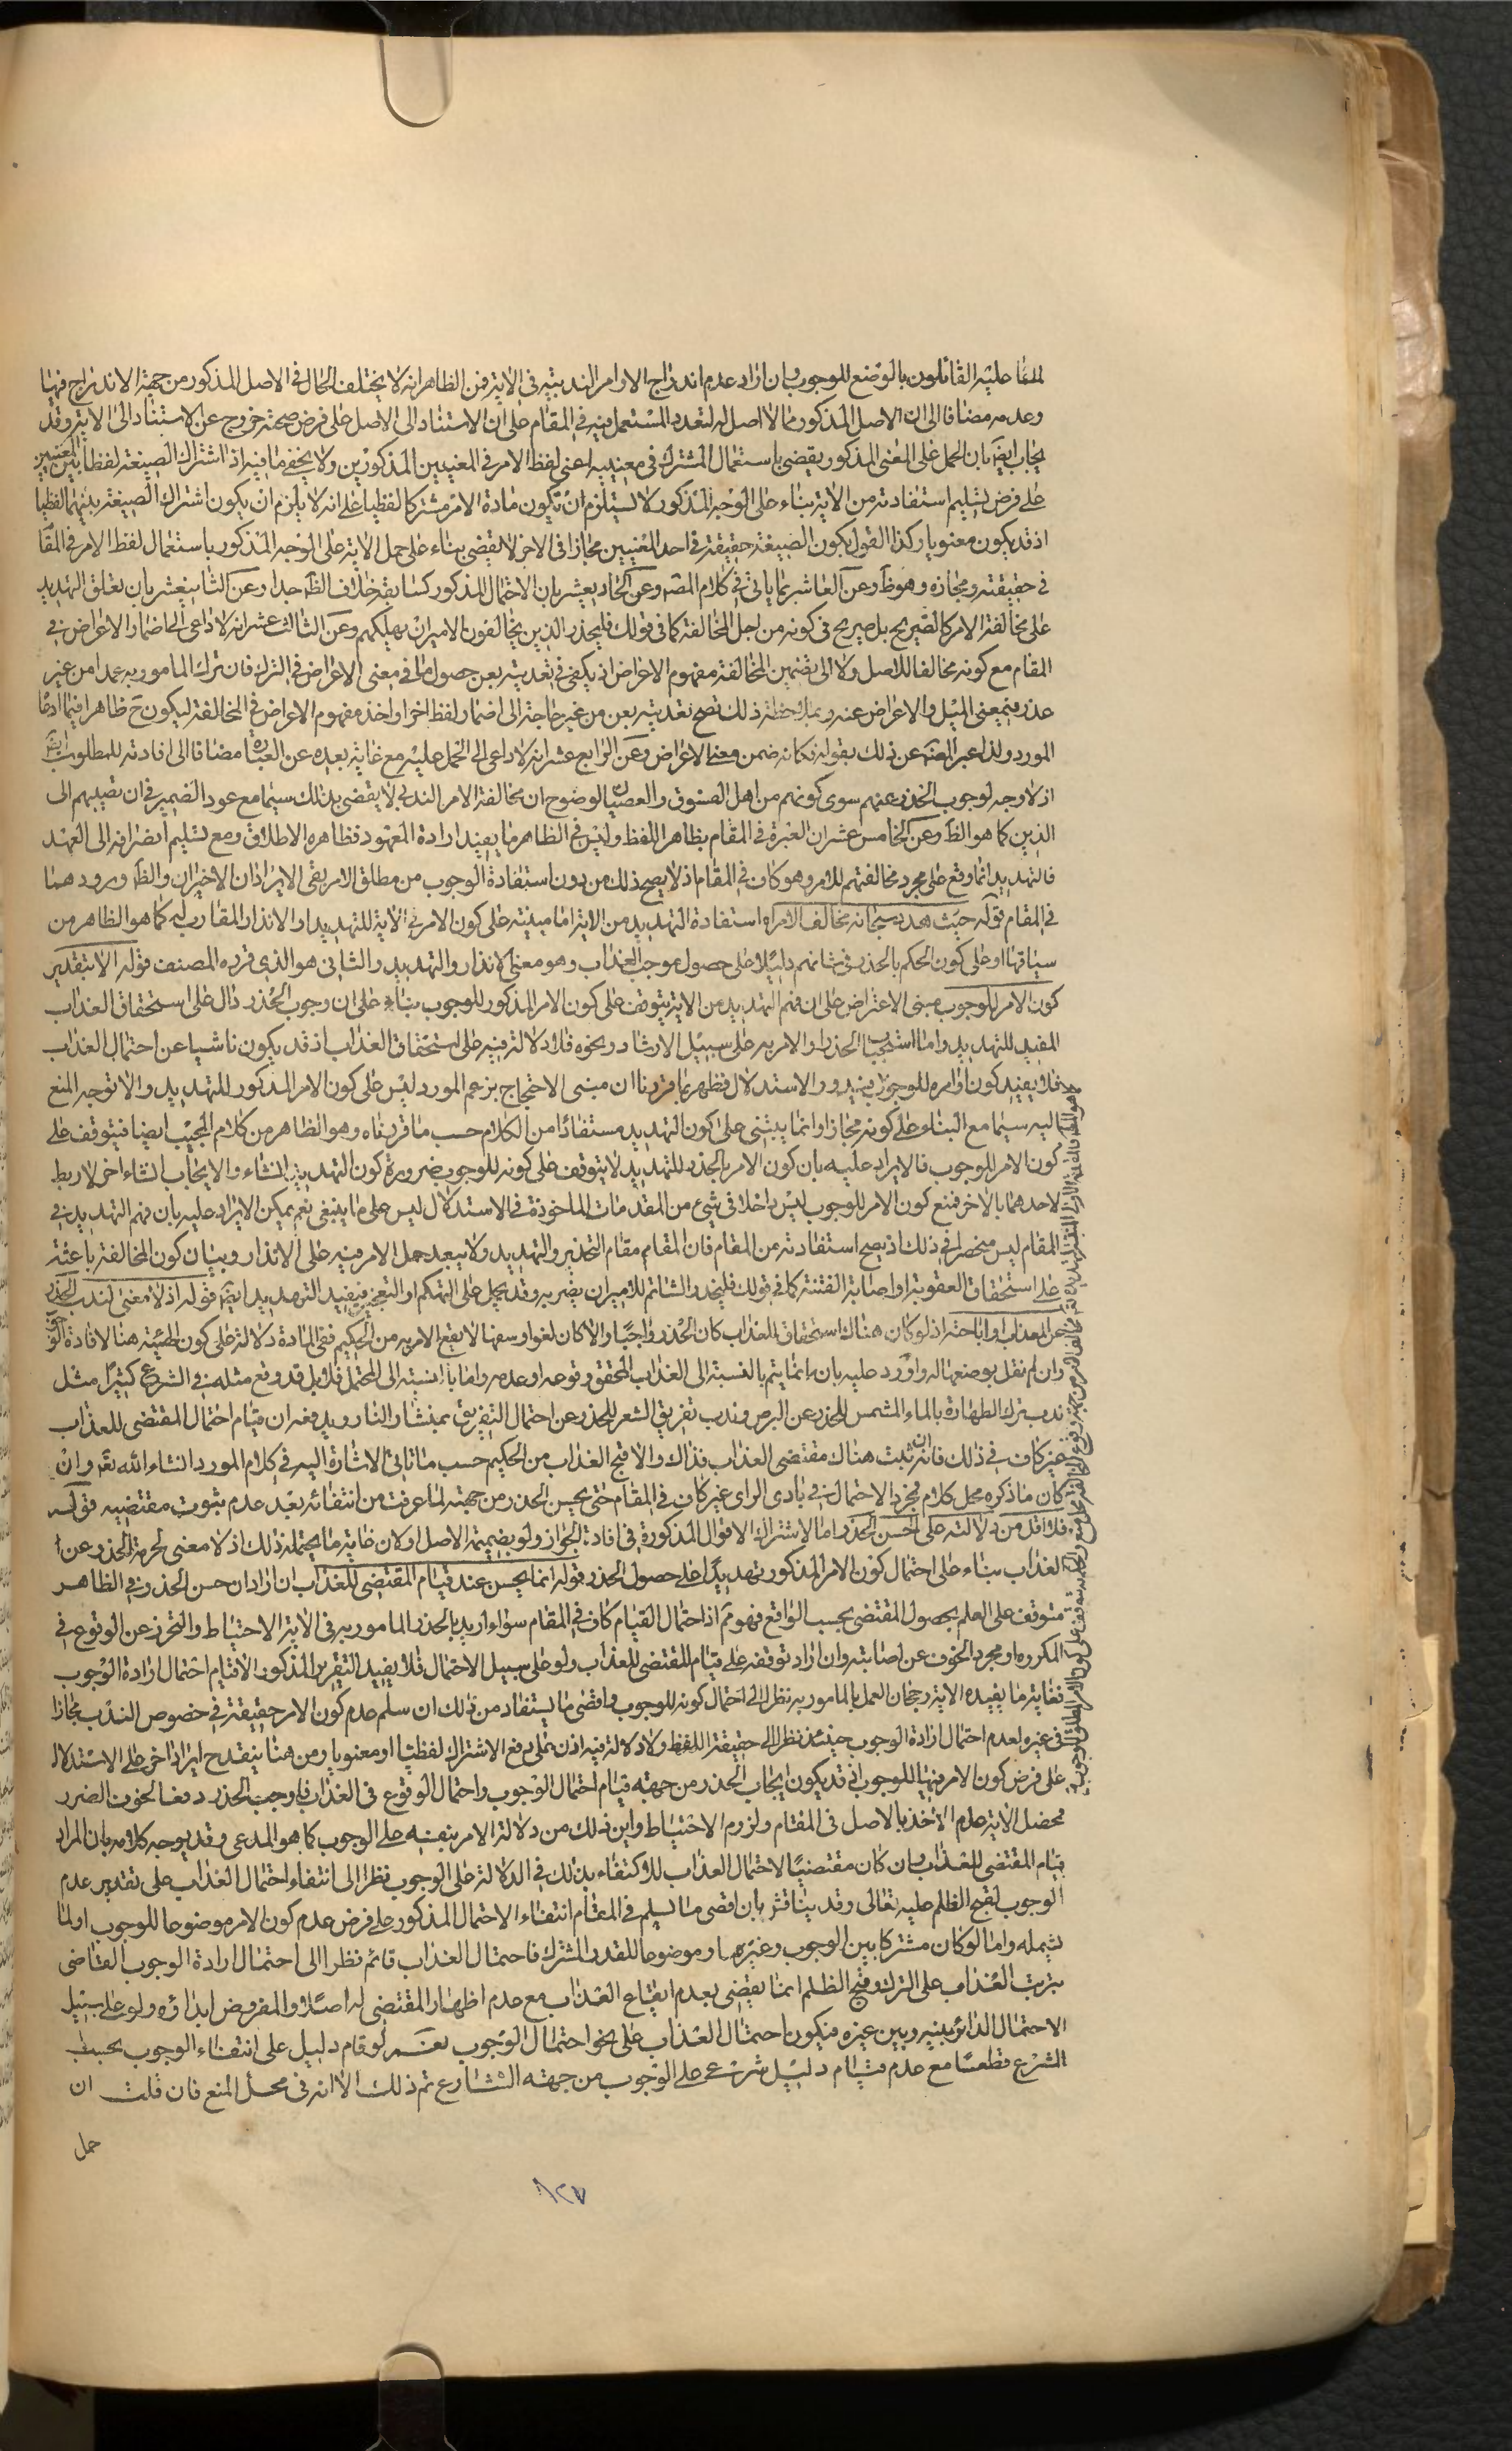 لما عليه القائلون بالوضع للوجوب وان اراد عدم اندراج الاوامر الندبية في الاية فمن الظاهر انه لا يختلف الحال في الاصل المذكور من جهة الاندراج فيها
وعدمه مضافا الى ان الاصل المذكور مما لا اصل له لتعدد المستعمل فيه في المقام على ان الاستناد الى الاصل على فرض صحته خروج عن الاستناد الى الاية وقد
يجاب ايضا بان الحمل على المعنى المذكور يقضي باستعمال المشترك في معنييه اعني لفظ الامر في المعنيين المذكورين ولا يخفى ما فيه اذ اشتراك الصيغة لفظا بين المعنيين
على فرض تسليم استفادته من الاية بناء على الوجه المذكور لا يستلزم ان تكون مادة الامر مشتركا لفظيا على انه لا يلزم ان يكون اشتراك الصيغة بينهما لفظيا
اذ قد يكون معنويا وكذا القول بكون الصيغة حقيقة في احد المعنيين مجازا في الاخر لا يقضي بناء على حمل الاية على الوجه المذكور باستعمال لفظ الامر في المقا
في حقيقته ومجازه وهو ظ وعن العاشر بما ياتي في كلام المصه وعن الحاد يعشر بان الاحتمال المذكور كسابقه خلاف الظ جدا وعن الثانيعشر بان تعلق التهديد
على مخالفة الامر كالصريح بل صريح في كونه من اجل المخالفة كما في قولك فليحذر الذين يخالفون الامير ان يهلكهم وعن الثالث عشر انه لا داعي الى اضمار الاعراض في
المقام مع كونه مخالفا للاصل ولا الى تضمين المخالفة مفهوم الاعراض اذ يكفي في تعديته بعن حصول ما في معنى الاعراض في الترك فان ترك المامور به عمدا من غير
عذر فيه معنى الميل والاعراض عنه وبملاحظة ذلك تصح تعديته بعن من غير حاجة الى اضمار لفظ اخر او اخذ مفهوم الاعراض في المخالفة ليكون ح ظاهرا فيما ادعا
المورد ولذا عبر المصه عن ذلك بقوله فكانه ضمن معنى الاعراض وعن الرابع عشر انه لا داعي الى الحمل عليه مع غاية بعده عن العبارة مضافا الى افادته للمطلوب ايضا
اذ لا وجه لوجوب الحذر عنهم سوى كونهم من اهل الفسوق والعصيان لوضوح ان مخالفة الامر الندبي لا يقضي بذلك سيما مع عود الضمير في ان تصيبهم الى
الذين كما هو الظ وعن الخامس عشر ان العبرة في المقام بظاهر اللفظ وليس في الظاهر ما يفيد ارادة المعهود فظاهره الاطلاق ومع تسليم انصرافه الى العهد
فالتهديد انما وقع على مجرد مخالفتهم للامر وهو كاف في المقام اذ لا يصح ذلك من دون استفادة الوجوب من مطلق الامر بقي الايرادان الاخيران والظ ورودهما
في المقام قوله حيث هدد سبحانه مخالف الامر اه استفادة التهديد من الاية اما مبنية على كون الامر في الاية للتهديد او الانذار المقارب له كما هو الظاهر من
سياقها او على كون الحكم بالحذر في شانهم دليلا على حصول موجب العذاب وهو معنى الانذار والتهديد والثاني هو الذي قرره المصنف قوله الا بتقدير
كون الامر للوجوب مبنى الاعتراض على ان فهم التهديد من الاية يتوقف على كون الامر المذكور للوجوب بناء على ان وجوب الحذر دال على استحقاق العذاب
المفيد للتهديد واما استحباب الحذر او الامر به على سبيل الارشاد ونحوه فلا دلالة فيه على استحقاق العذاب اذ قد يكون ناشيا عن احتمال العذاب
فلا يفيد كون اوامره للوجوب فيدور الاستدلال فظهر بما قررنا ان مبنى الاحتجاج بزعم المورد ليس على كون الامر المذكور للتهديد والا توجه المنع
اليه سيما مع البناء على كونه مجازا وانما يبتني على كون التهديد مستفادا من الكلام حسب ما قررناه وهو الظاهر من كلام المجيب ايضا فيتوقف على
كون الامر للوجوب فالايراد عليه بان كون الامر بالحذر للتهديد لا يتوقف على كونه للوجوب ضرورة كون التهديد انشاء والايجاب انشاء اخر لا ربط
لاحدهما بالاخر فمنع كون الامر للوجوب ليس داخلا في شيء من المقدمات الماخوذة في الاستدلال ليس على ما ينبغي نعم يمكن الايراد عليه بان فهم التهديد في
المقام ليس منحصرا في ذلك اذ يصح استفادته من المقام فان المقام مقام التحذير والتهديد ولا يبعد حمل الامر فيه على الانذار وبيان كون المخالفة باعثة
على استحقاق العقوبة او اصابة الفتنة كما في قولك فليحذر الشاتم للامير ان يضربه وقد يحمل على التهكم او التعجيز فيفيد التهديد ايضا قوله اذ لا معنى لندب الحذر
عن العذاب او اباحته اذ لو كان هناك استحقاق للعذاب كان الحذر واجبا والا كان لغوا وسفها لا يقع الامر به من الحكيم ففي المادة دلالة على كون الهيئة هنا لافادة الوجوب
وان لم نقل بوضعها له واورد عليه بان ما انما يتم بالنسبة الى العذاب المحقق وقوعه او عدمه واما بالنسبة الى المحتمل فلا بل قد وقع مثله في الشرع كثيرا مثل
ندب ترك الطهارة بالماء المشمس للحذر عن البرص وندب تفريق الشعر للحذر عن احتمال التفريق بمنشار النار ويدفعه ان قيام احتمال المقتضي للعذاب
غير كاف في ذلك فانه ان ثبت هناك مقتضى العذاب فذاك والا قبح العذاب من الحكيم حسب ما تاتي الاشارة اليه في كلام المورد انشاء الله تع وان
كان ما ذكره محل كلام فمجرد الاحتمال في بادي الراي غير كاف في المقام حتى يحسن الحذر من جهته لما عرفت من انتفائه بعد عدم ثبوت مقتضيه قوله
فلا اقل من دلالته على حسن الحذر اما الاشتراك الاقوال المذكورة في افادة الجواز ولو بضميمة الاصل او لان غاية ما يحتمله ذلك اذ لا معنى لحرمة الحذر عن
العذاب بناء على احتمال كون الامر المذكور تهديدا على حصول الحذر قوله انما يحسن عند قيام المقتضي للعذاب ان اراد ان حسن الحذر في الظاهر
متوقف على العلم بحصول المقتضي بحسب الواقع فهو مم اذ احتمال القيام كاف في المقام سواء اريد بالحذر المامور به في الاية الاحتياط والتحرز عن الوقوع في
المكروه او مجرد الخوف عن اصابته وان اراد توقفه على قيام المقتضي للعذاب ولو على سبيل الاحتمال فلا يفيد التقرير المذكور الا قيام احتمال ارادة الوجوب
فغاية ما يفيده الاية رجحان العمل بالمامور به نظرا الى احتمال كونه للوجوب واقضى ما يستفاد من ذلك ان سلم عدم كون الامر حقيقة في خصوص الندب مجازا
في غيره لعدم احتمال ارادة الوجوب حينئذ نظرا الى حقيقة اللفظ ولا دلالة فيه اذن على رفع الاشتراك لفظيا او معنويا ومن هنا ينقدح ايراد اخر على الاستدلال
على فرض كون الامر فيها للوجوب اذ قد يكون ايجاب الحذر من جهة قيام احتمال الوجوب واحتمال الوقوع في العذاب فاوجب الحذر دفعا لخوف الضرر
محصل الاية عدم الاخذ بالاصل في المقام ولزوم الاحتياط واين ذلك من دلالة الامر بنفسه على الوجوب كما هو المدعى وقد يوجه كلامه بان المراد
قيام المقتضي للعذاب وان كان مقتضيا لاحتمال العذاب للاكتفاء بذلك في الدلالة على الوجوب نظرا الى انتفاء احتمال العذاب على تقدير عدم
الوجوب لقبح الظلم عليه تعالى وقد يناقش بان اقصى ما يسلم في المقام انتفاء الاحتمال المذكور على فرض عدم كون الامر موضوعا للوجوب او لما
يشمله واما لو كان مشتركا بين الوجوب وغيره او موضوعا للقدر المشترك فاحتمال العذاب قائم نظرا الى احتمال ارادة الوجوب القاضي
بترتب العذاب على الترك وقبح الظلم انما يقضي بعدم ايقاع العذاب مع عدم اظهار المقتضي له اصلا والمفروض ابداؤه ولو على سبيل
الاحتمال الدائر بينه وبين غيره فيكون احتمال العذاب على نحو احتمال الوجوب نعم لو قام دليل على انتفاء الوجوب بحسب
الشرع قطعا مع عدم قيام دليل شرعي على الوجوب من جهة الشارع تم ذلك الا انه في محل المنع فان قلت ان
حمل
١٢٧